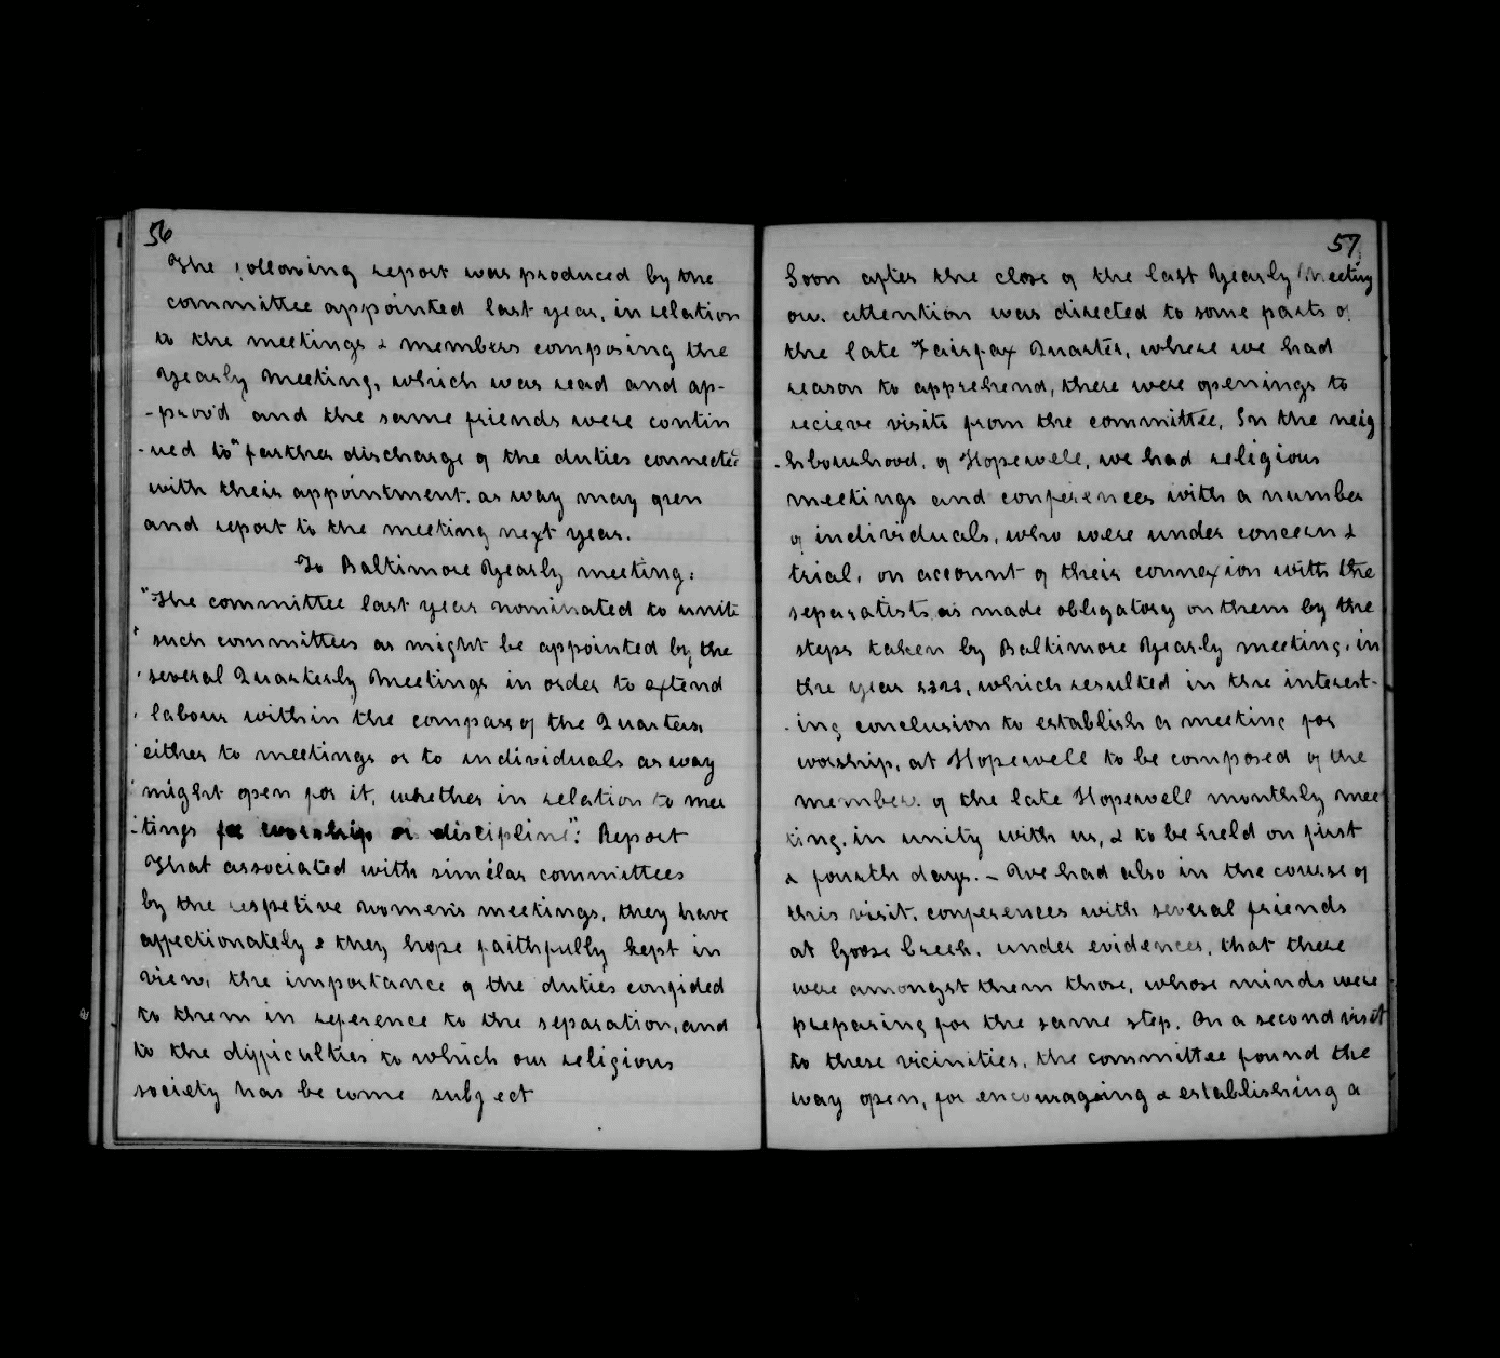 56
The following report was produced by the
committee appointed last year, in relation
to the meetings & members composing the
Yearly Meeting, which was read and ap-
-prov'd and the same friends were contin
-ued to" farther discharge of the duties connected
with their appointment. as way may open
and report to the meeting next year.
To Baltimore Yearly meeting:
"The committee last year nominated to unite
" such committees as might be appointed by the
" several Quarterly Meetings in order to extend
" labour within the compass of the Quarters
" either to meetings or to individuals as way
" might open for it, whether in relation to mee
-tings for worship or discipline": Report
That associated with similar committees
by the respective women's meetings, they have
affectionately & they hope faithfully kept in
view, the importance of the duties confided
to them in reference to the separation, and
to the difficulties to which our religious
society has become subject
57
Soon after the close of the last Yearly Meeting
our attention was directed to some parts of
the late Fairfax Quarter, where we had
reason to apprehend, there were openings to
recieve visits from the committee, In the neig
-hbourhood, of Hopewell, we had religious
meetings and conferences with a number
of individuals, who were under concern &
trial, on account of their connexion with the
separatists, as made obligatory on them by the
steps taken by Baltimore Yearly meeting, in
the year 1828, which resulted in the interest-
-ing conclusion to establish a meeting for
worship, at Hopewell to be composed of the
members of the late Hopewell monthly mee
ting, in unity with us, & to be held on first
& fourth days. - We had also in the course of
this visit, conferences with several friends
at Goose Creek, under evidences, that there
were amongst them those, whose minds were
preparing for the same step. On a second visit
to these vicinities, the committee found the
way open, for encouraging & establishing a